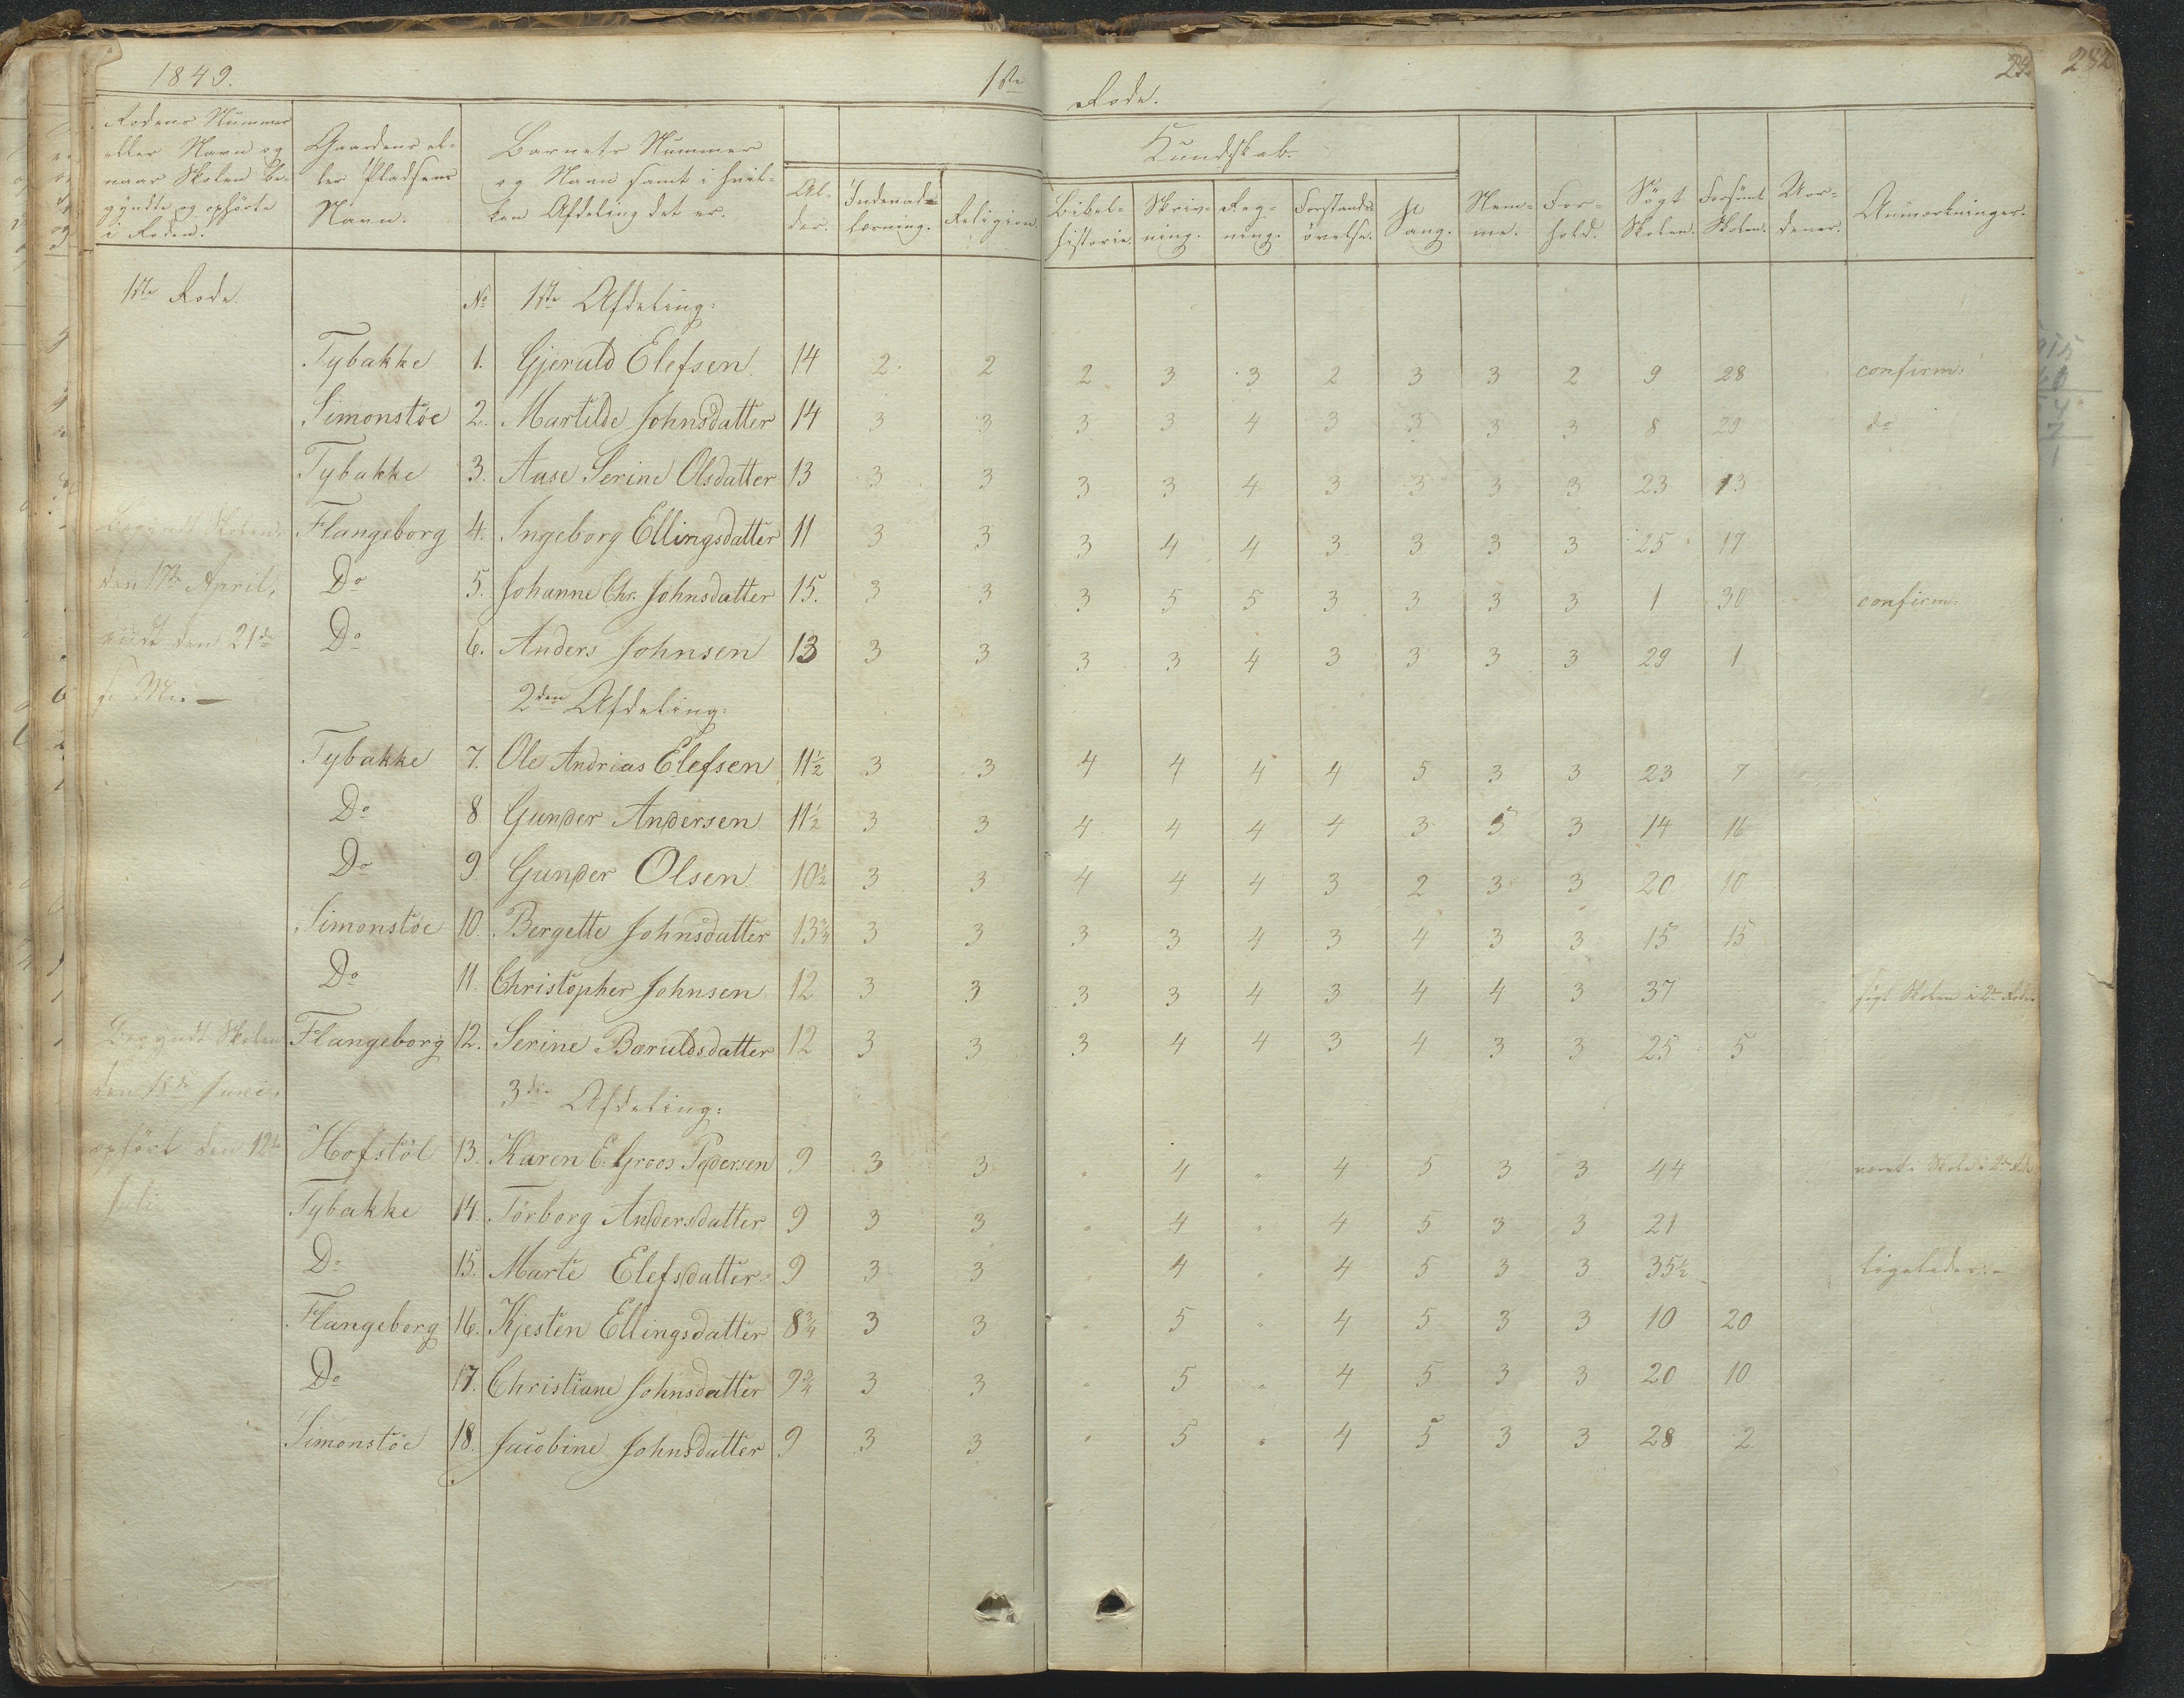 1849. 1ste Rode. 24. 232
Rodens Nummer eller Navn og naar Skolen be- gyndte og ophörte i Roden.
Gaardens el- ler Pladsens Navn.
Barnets Nummer og Navn samt i hvil- ken Afdeling det er.
Al- der.
Kundskab.
Indenad- læsning. Religion. Bibel- historie. Skriv- ning. Reg- ning. Forstands- övelse. Sang.
Nem- me. For- hold. Sögt Skolen. Forsömt Skolen. Uor- dener. Anmærkninger.
1ste Rode. No 1ste Afdeling:
Tybakke 1. Gjeruld Elefsen 14 2 2 2 3 3 2 3 3 2 9 28 confirm:
Simonstöe 2. Martilde Johnsdatter 14 3 3 3 3 4 3 3 3 3 8 29 do
Tybakke 3. Aase Serine Olsdatter 13 3 3 3 3 4 3 3 3 3 23 13
Begyndt Skolen Flangeborg 4. Ingeborg Ellingsdatter 11 3 3 3 4 4 3 3 3 3 25 17
den 17de April, Do 5. Johanne Chr. Johnsdatter 15. 3 3 3 5 5 3 3 3 3 1 30 confirm:
den 21de Do 6. Anders Johnsen 13 3 3 3 3 4 3 3 3 3 29 1
2den Afdeling:
Tybakke 7. Ole Andrias Elefsen 11½ 3 3 4 4 4 4 5 3 3 23 7
Do 8 Gunder Andersen 11½ 3 3 4 4 4 4 3 3 3 14 16
Do 9 Gunder Olsen 10½ 3 3 4 4 4 3 2 3 3 20 10
Simonstöe 10. Bergette Johnsdatter 13¾ 3 3 3 3 4 3 4 3 3 15 15
Do 11. Christopher Johnsen 12 3 3 3 3 4 3 4 4 3 37 sögt Skolen i 2de Rode
Begyndt Skolen Flangeborg 12. Serine Baruldsdatter 12 3 3 3 4 4 3 4 3 3 25 5
den Juni, 3die Afdeling:
ophört den 12te Hofstöl 13. Karen E. Groos Pedersen 9 3 3 " 4 " 4 5 3 3 44 været i Skole i 2de Rode
Juli Tybakke 14. Torborg Andersdatter 9 3 3 " 4 " 4 5 3 3 21
Do 15. Marte Elefsdatter 9 3 3 " 4 " 4 5 3 3 35½ ligeledes.
Flangeborg 16. Kjesten Ellingsdatter 8¾ 3 3 " 5 " 4 5 3 3 10 20
Do 17. Christiane Johnsdatter 9¾ 3 3 " 5 " 4 5 3 3 20 10
Simonstöe 18. Jacobine Johnsdatter 9 3 3 " 5 " 4 5 3 3 28 2